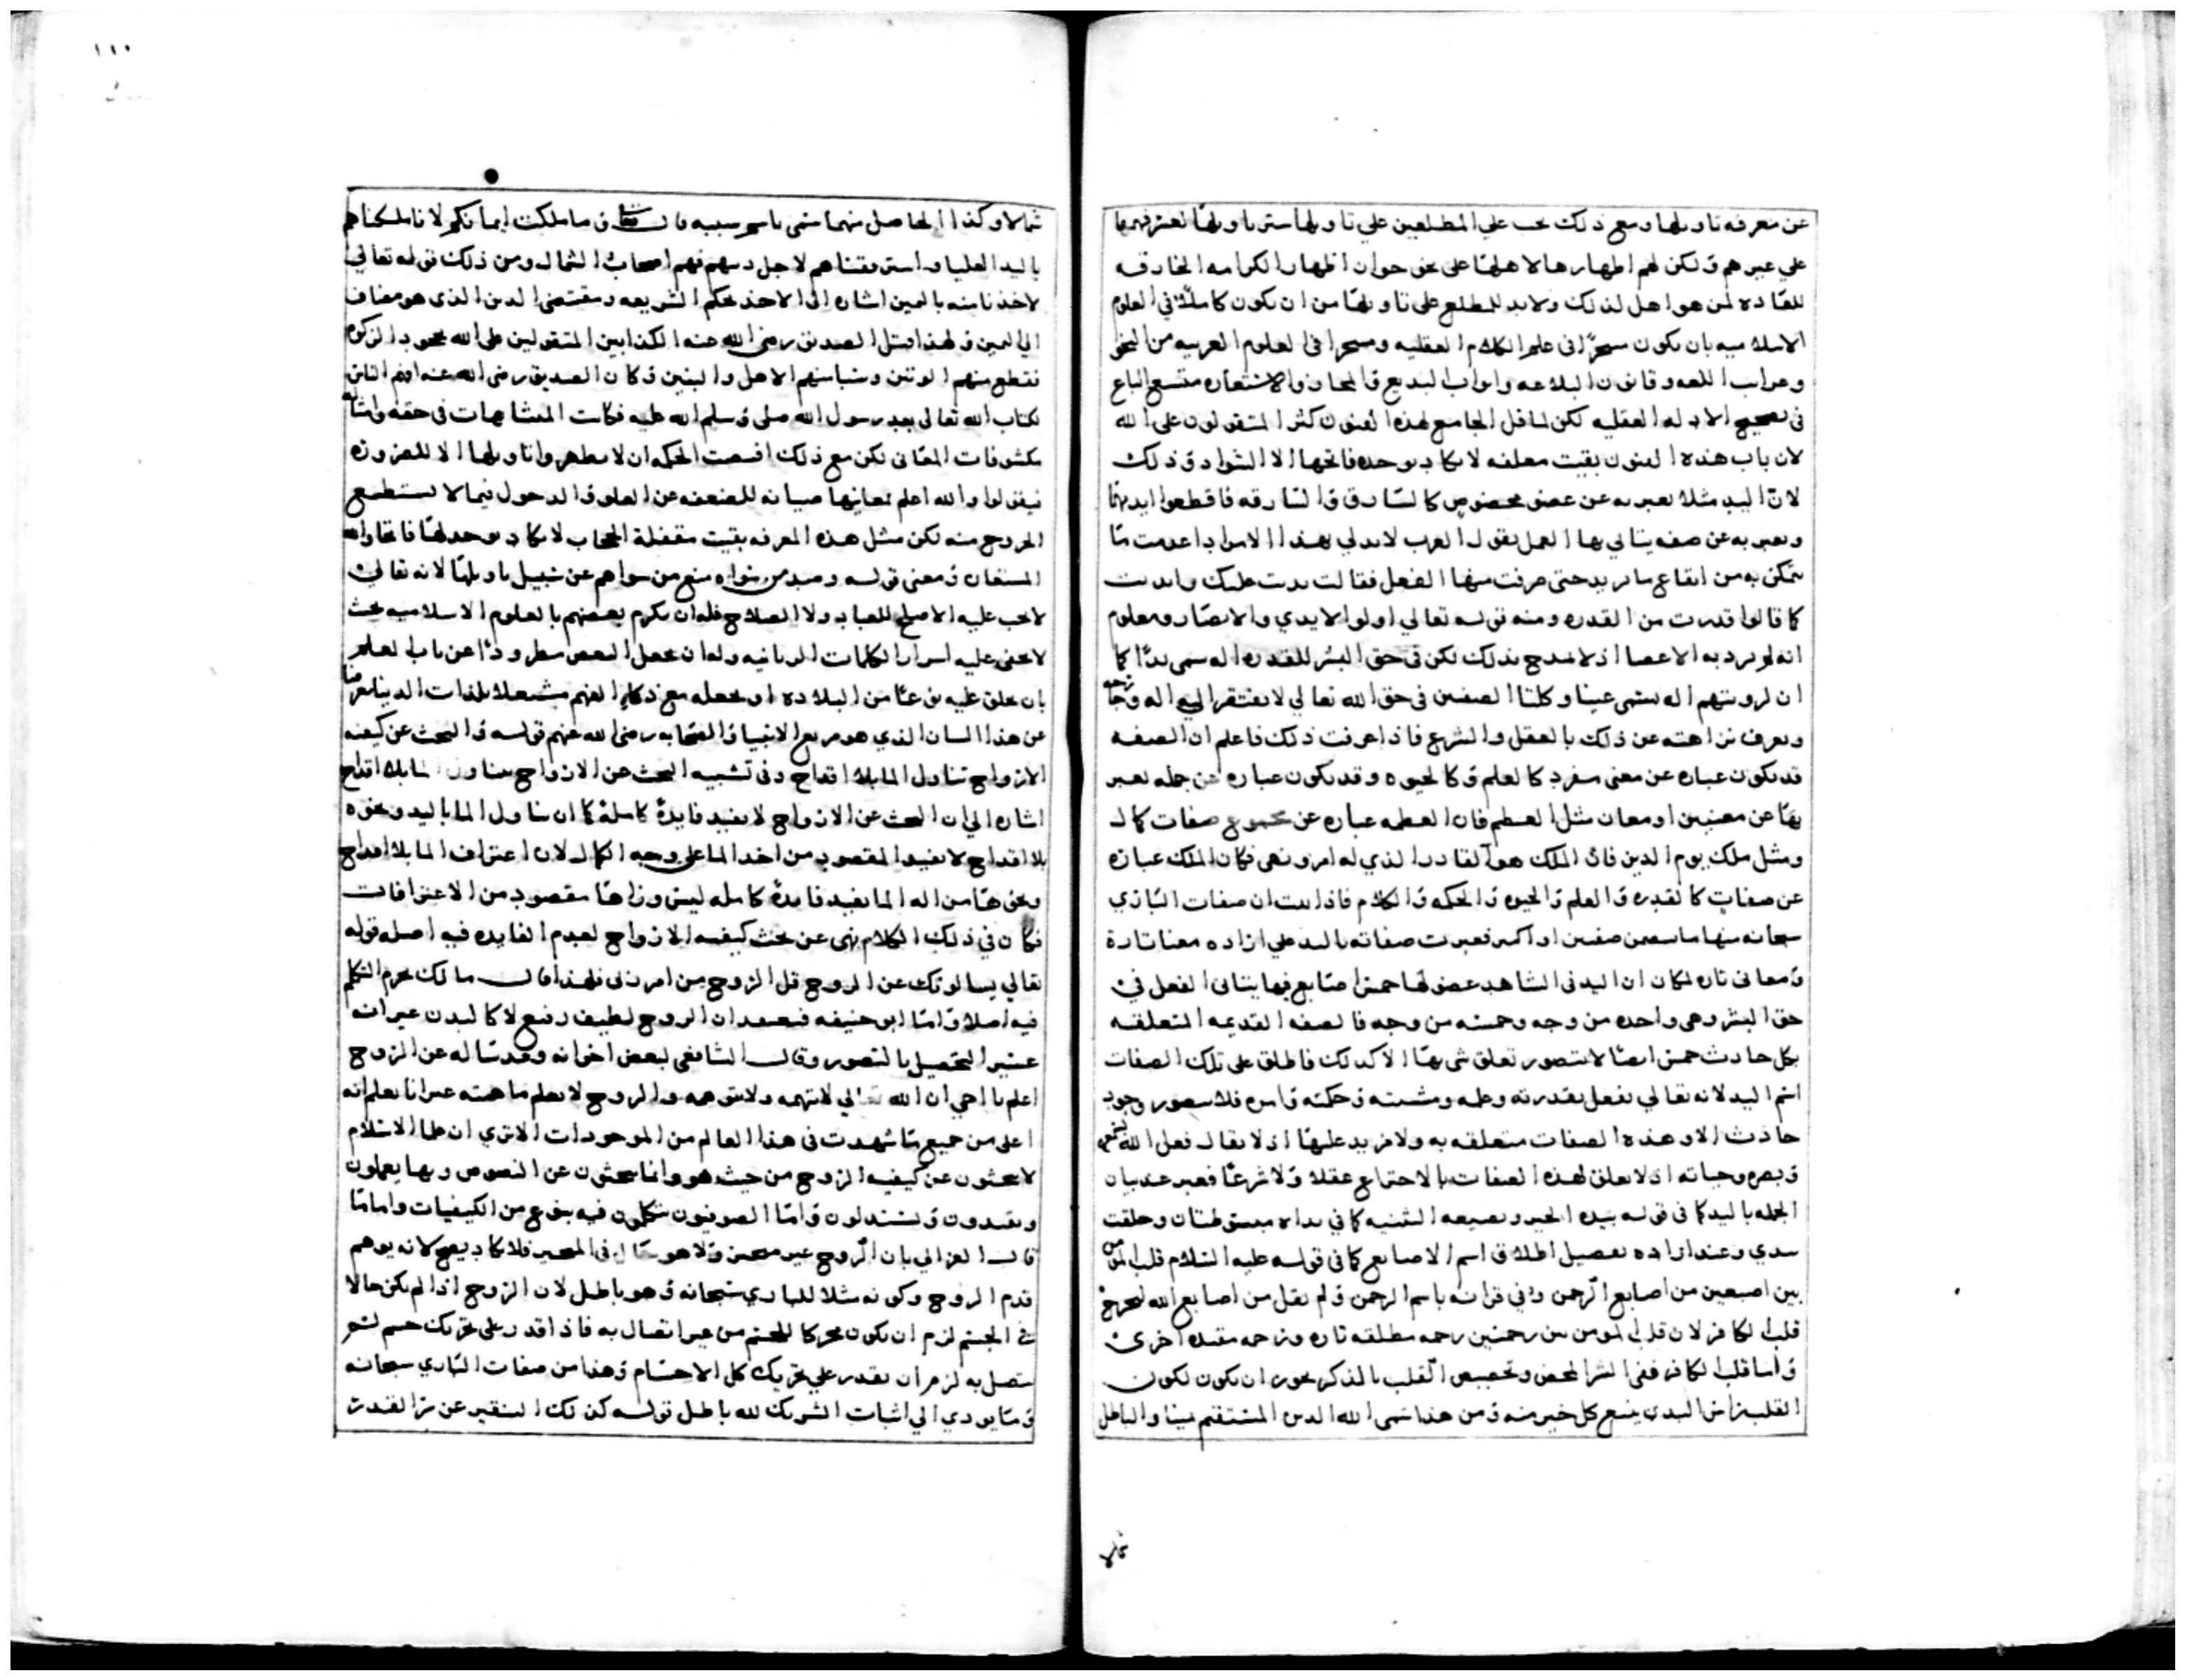 عن معرفه تاويلها ومع ذلك يجب علي المطلعين علي تاويلها ستر تاويلها
علي غيرهم ولكن لهم اظهارها لاهلها على نحو جواز اظهار الكرامه الخارقه
للعاده لمن هو اهل لذلك ولابد للمطلع على تاويلها من ان يكون كاملا في العلوم
الاسلاميه بان يكون متبحرا فى علم الكلام العقليه ومتبحرا فى العلوم العربيه من النحو
وغرايب اللغه وقانون البلاغه وابواب البديع والمجاز والاستعاره متسع الباع
فى تصحيح الادله العقليه لكن لما قل الجامع لهذه الفنون كثر المتقولون على الله
لان باب هذه الفنون بقيت مغلقه لا يكاد يوجد فاتحها الا الشواد وذلك
لان اليد مثلا تعبر به عن عضو مخصوص كالسارق والسارقه فاقطعوا ايديهما
ويعبر به عن صفه يتاتي بها الفعل يقول العرب لا يد لي بهذا الامر اذا عدمت ما
تتمكن به من ايقاع ما تريد حتى صرفت منها الفعل فقالت يديت عليك وايديت
كما قالوا قدرت من القدره ومنه قوله تعالي اولوا الايدي والابصار ومعلوم
انه لم يرد به الاعضا اذ لا مدح بذلك لكن في حق البشر للقدره اله سمى يدا كما
ان لرويتهم اله يسمى عينا وكلتا الصفتين فى حق الله تعالي لا يفتقر الي اله وجارحه
ويعرف نزاهته عن ذلك بالعقل والشرع فاذا عرفت ذلك فاعلم ان الصفه
قد يكون عباره عن معنى مفرد كالعلم وكالحيوه وقد يكون عباره عن جمله يعبر
بها عن معنيين او معان مثل العظيم فان العظمه عباره عن مجموع صفات كمال
ومثل ملك يوم الدين فان الملك هو القادر الذي له امر ونهى فكان الملك عباره
عن صفات كالقدره والعلم والحيوه والحكمه والكلام فاذا ثبت ان صفات الباري
سبحانه منها ما يتضمن صفتين او اكثر فعبرت صفاته باليد علي اراده معنا تارة
ومعانى تاره لمكان ان اليد فى الشاهد عضو لها خمس اصابع فيها يتاتى الفعل في
حق البشر وهى واحده من وجه وخمسه من وجه فالصفه القديمه المتعلقه
بكل حادث خمس ايضا لا يتصور تعلق شى بها الا كذلك فاطلق على تلك الصفات
اسم اليد لانه تعالي يفعل بقدرته وعلمه ومشيته وحكمته وامره فلا يتصور وجود
حادث الا وهذه الصفات متعلقه به ولا مزيد عليها اذ لا يقال فعل الله
وبصره وحياته اذ لا تعلق لهذه الصفات بالاختراع عقلا ولا شرعا فعبر عند بيان
الجمله باليد كما فى قوله بيده الخير وبصيغه التثنيه كما في يداه مبسوطتان وخلقت
بيدي وعند اراده تفصيل اطلاق اسم الاصابع كما فى قوله عليه السلام قلب المومن
بين اصبعين من اصابع الرحمن وفي قرانه باسم الرحمن ولم يقل من اصابع الله ليخرج
قلب الكافر لان قلب المومن بين رحمتين رحمه مطلقه تاره ورحمه مقيده اخرى
واما قلب الكافر ففى الشر المحض وتخصيص القلب بالذكر يجوز ان يكون لكون
القلب راس البدن ينبع كل خير منه ومن هذا سمى الله الدين المستقيم يمينا والباطل
شمالا
١١٠
شمالا وكذا الحاصل منهما سمى باسم سببه قال تعالى وما ملكت ايمانكم لانا ملكناهم
باليد العليا واسترققناهم لاجل دينهم فهم اصحاب الشمال ومن ذلك قوله تعالي
لاخذنا منه باليمين اشاره الى الاخذ بحكم الشريعه ومقتضى الدين الذى هو مضاف
الي اليمين ولهذا قتل الصديق رضى الله عنه الكذابين المتقولين على الله بجحود الزكوه
فقطع منهم الوتين وسبا منهم الاهل والبنين وكان الصديق رضى الله عنه افهم الناس
لكتاب الله تعالى بعد رسول الله صلى وسلم الله عليه فكانت المتشابهات فى حقه وامثاله
مكشوفات المعانى لكن مع ذلك اقتضت الحكمه ان لا يظهروا تاويلها الا للضروره
فيقولوا والله اعلم بمعانيها صيانه للضعفه عن العلو والدخول فيما لا يستطيع
الخروج منه لكن مثل هذه المعرفه بقيت مقفلة الحجاب لا يكاد يوجد لها فاتحا والله
المستعان ومعنى قوله وصد من سواه منع من سواهم عن سبيل تاويلها لانه تعالى
لا يجب عليه الاصلح للعباد ولا الصلاح فله ان يكرم بعضهم بالعلوم الاسلاميه بحيث
لا يخفى عليه اسرار الكلمات الربانيه وله ان يجعل البعض مطرودا عن باب العلم
بان يخلق عليه نوعا من البلاده او يجعله مع ذكاء الفهم مشتغلا بلذات الدنيا معرضا
عن هذا الشان الذي هو مربع الانبيا والصحابه رضى الله عنهم قوله والبحث عن كيفيه
الازواح تناول الما بلا اقداح وفى تشبيه البحث عن الارواح بتناول الما بلا اقداح
اشاره الي ان البحث عن الارواح لا يفيد فايدة كاملة كما ان تناول الما باليد ونحوه
بلا اقداح لا يفيد المقصود من اخذ الما على وجه الكمال لان اغتراف الما بلا اقداح
ونحوها من اله الما يفيد فايدة كامله ليس وراها مقصود من الاغترافات
فكان في ذلك الكلام نهى عن بحث كيفيه الارواح لعدم الفايده فيه اصله قوله
تعالي يسالونك عن الروح قل الروح من امر ربى فلهذا قال مالك يحرم التكلم
فيه اصلا واما ابو حنيفه فيعتقد ان الروح لطيف رفيع لا كالبدن غير انه
عسير التحصيل بالتصور وقال الشافعى لبعض اخوانه وقد ساله عن الروح
اعلم يا اخي ان الله تعالي لا تتهمه ولا تتوهمه والروح لا يعلم ماهيته غير انا نعلم انه
اعلى من جميع ما شهدت فى هذا العالم من الموجودات الا ترى ان علما الاسلام
لا يبحثون عن كيفيه الروح من حيث هو وانما يبحثون عن النصوص وبها يعملون
ويعتقدون ويستدلون واما الصوفيون يتكلمون فيه بنوع من الكيفيات واما ما
قال الغزالي بان الروح غير متحيز ولا هو حال فى المتحيز فلا يكاد يصح لانه يوهم
قدم الروح وكونه مثلا للباري سبحانه وهو باطل لان الروح اذا لم يكن حالا
في الجسم لزم ان يكون محركا للجسم من غير اتصال به فاذا قدر على تحريك جسم ليس
متصل به لزم ان يقدر علي تحريك كل الاجسام وهذا من صفات الباري سبحانه
وما يودي الي اثبات الشريك لله باطل قوله كذلك التنقير عن سر القدر